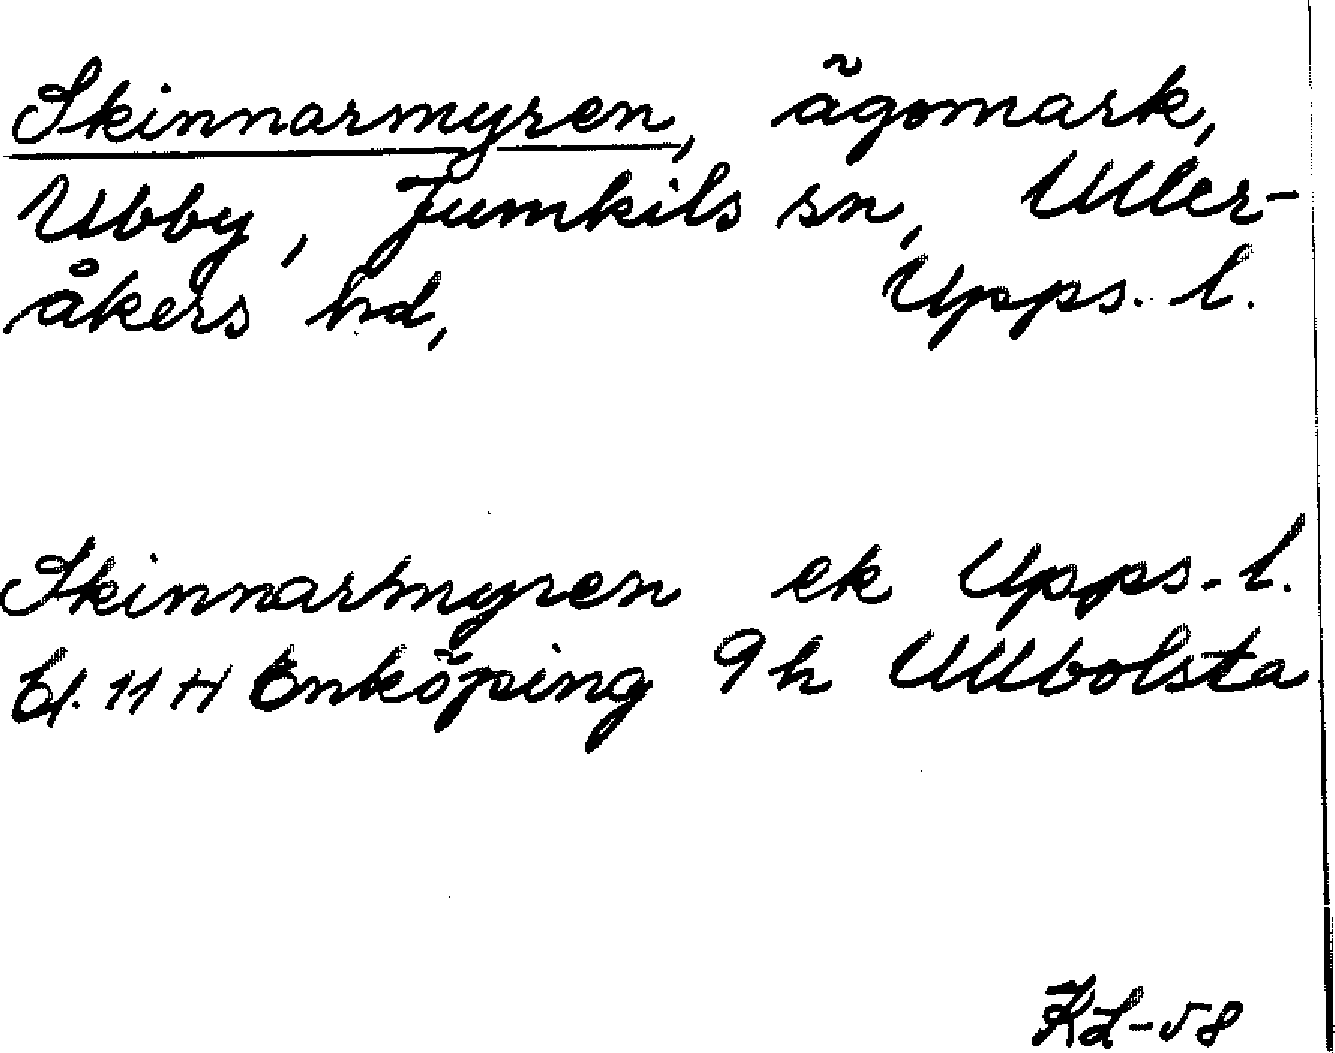 Skinnarmyren, ägomark,
Ubby, Jumkils sn, Uller-
åkers hd, Upps. l.
Skinnarmyren ek Upps. l.
bl. 11 H Enköping 9 h Ullbolsta
KL-58